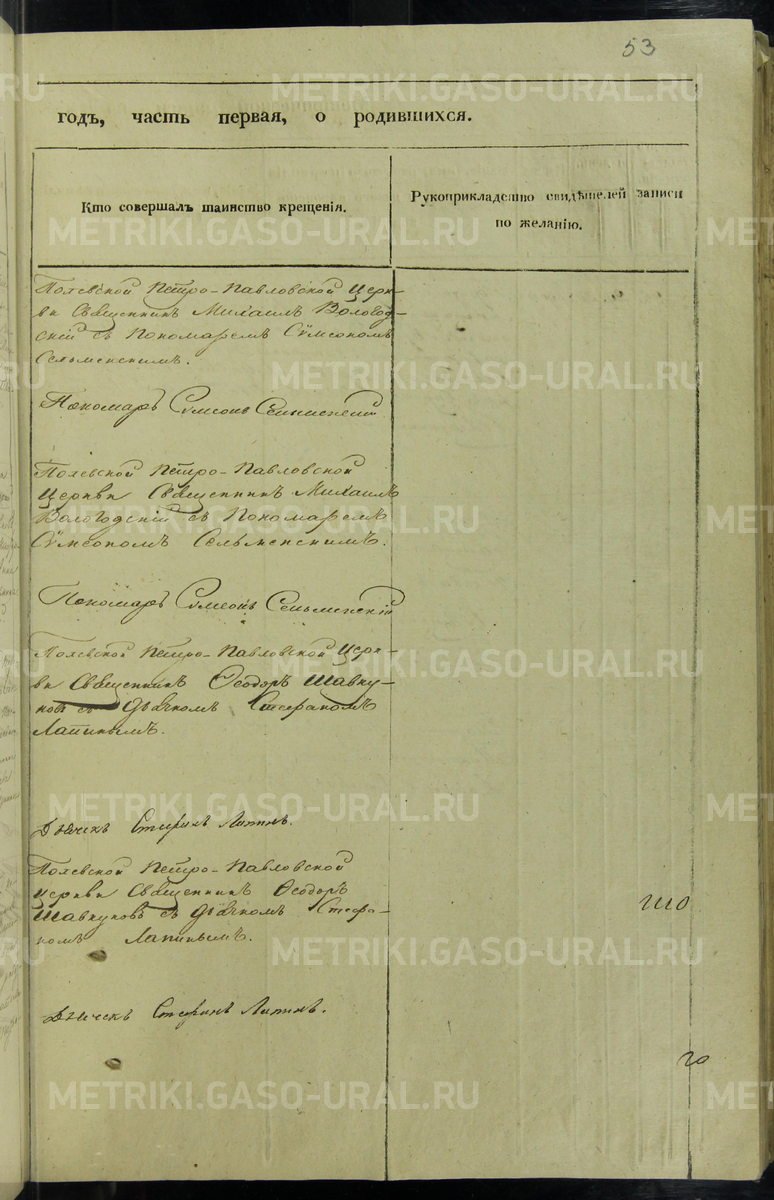 53
годъ, часть первая, о родившихся.
Кто совершалъ таинство крещенія.
Рукоприкладство свидѣтелей записи
по желанію.
Полевской Петро-Павловской Церк-
ви Священникъ Михаилъ Вологод-
скій съ Пономаремъ Сѵмеономъ
Сельменскимъ.
Пономарь Сумеонъ
Полевской Петро-Павловской
Церкви Священникъ Михаилъ
Вологодскій съ Пономаремъ
Сѵмеономъ Сельменскимъ.
Пономарь Сумеонъ Сельменскій
Полевской Петро-Павловской Церк-
ви Священникъ Ѳеодоръ Шавку-
новъ съ Дьячкомъ Стефаномъ
Лапинымъ.
Дьячекъ Стефанъ Лапинъ.
Полевской Петро-Павловской
Церкви Священникъ Ѳеодоръ
Шавкуновъ съ Дьячкомъ Стефа-
номъ Лапинымъ.
Дьячекъ Стефанъ Лапинъ.
METRIKI.GASO-URAL.RU